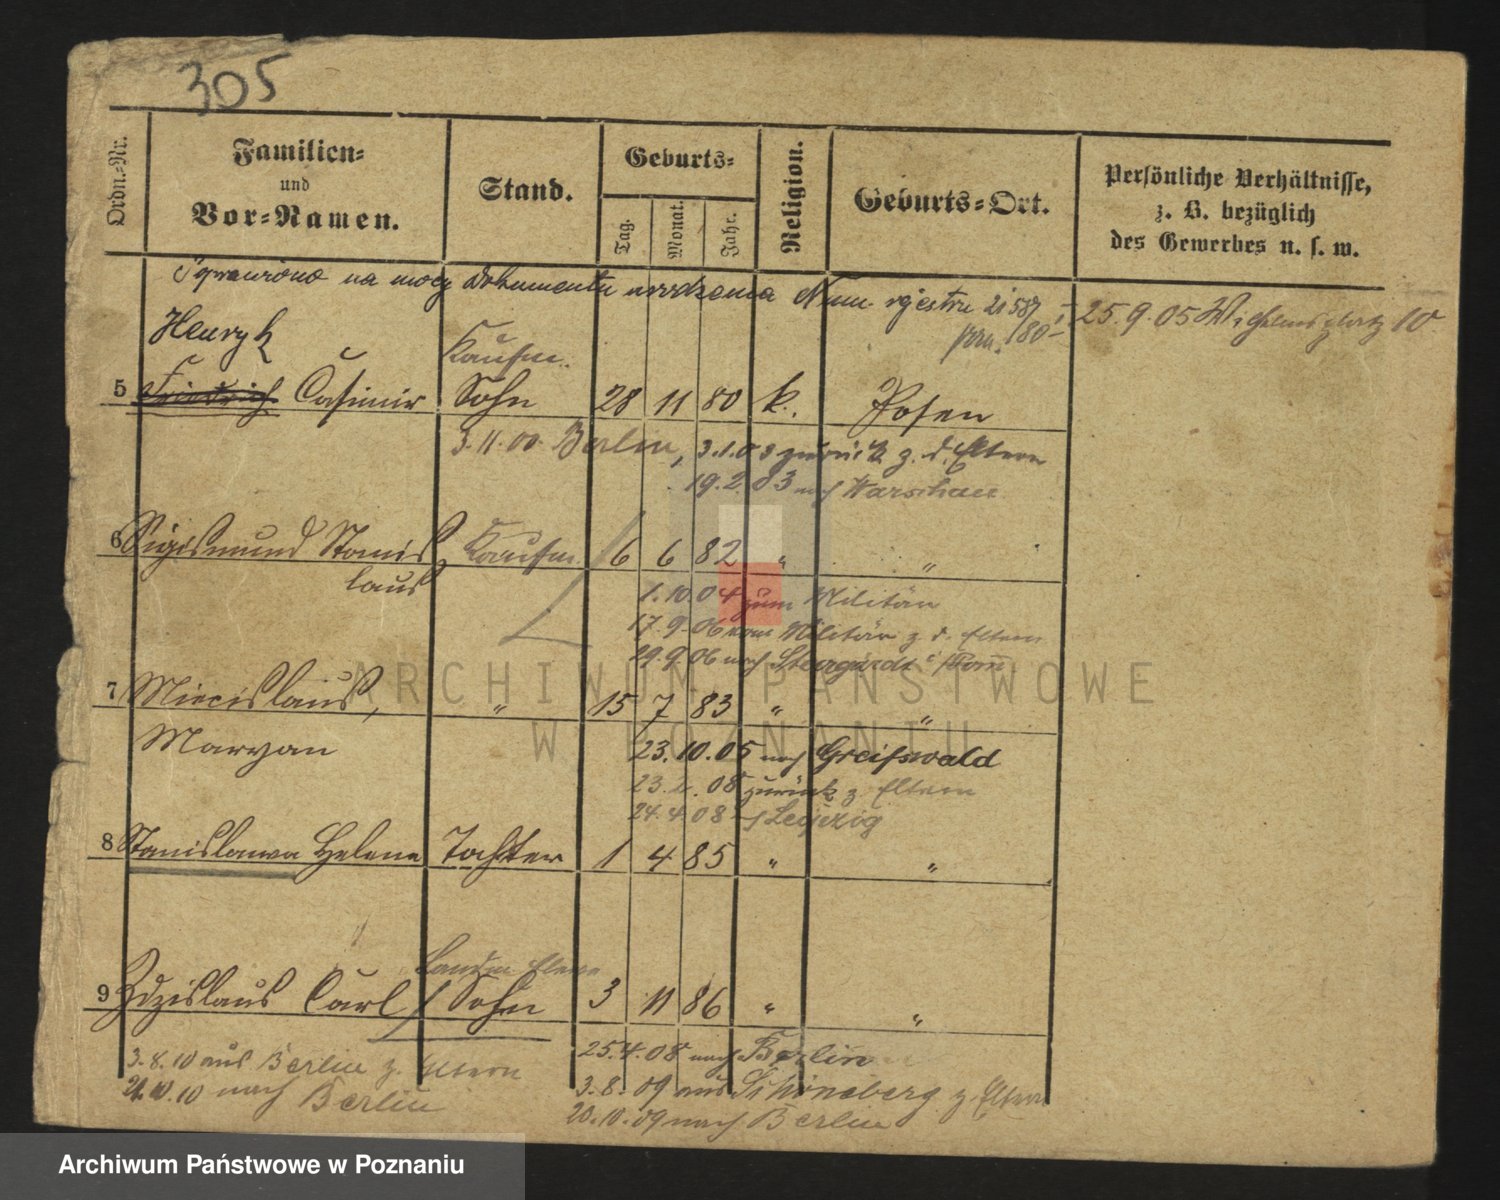 305
Ordn.-Nr.
Familien-
und
Vor-Namen.
Stand.
Geburts-
Tag.
Monat.
Jahr.
Religion.
Geburts-Ort.
Persönliche Verhältnisse,
z. B. bezüglich
des Gewerbes u. s. w.
na mocy dokumentu urodzenia Num. rejestru 2158
180
25.9.05 Wilhelmsplatz 10
Henryk
Kaufm.
5 Friedrich Casimir Sohn 28 11 80 k. Posen
3.11.00 Berlin, 3.1.03 zurück z. d. Eltern
19.2.03 nach Warschau
6 Sigismund Stanis Kaufm 16 6 82 " "
laus
1.10.04 zum Militär
17.9.06 vom Militär z. d. Eltern
29.9.06 nach Stargardt i/Pom
7 Miecislaus, " 15 7 83 " "
Maryan
23.10.05 nach Greifswald
23.2.08 zurück z. Eltern
24.4.08 Leipzig
8 Stanislawa Helene Tochter 1 4 85 " "
9 Zdzislaus Carl Sohn 3 11 86 " "
25.4.08 nach Berlin
3.8.10 aus Berlin z. Eltern
3.8.09 aus Schöneberg z. Eltern
10.10 nach Berlin
20.10.09 nach Berlin
ARCHIWUM PAŃSTWOWE
W POZNANIU
Archiwum Państwowe w Poznaniu